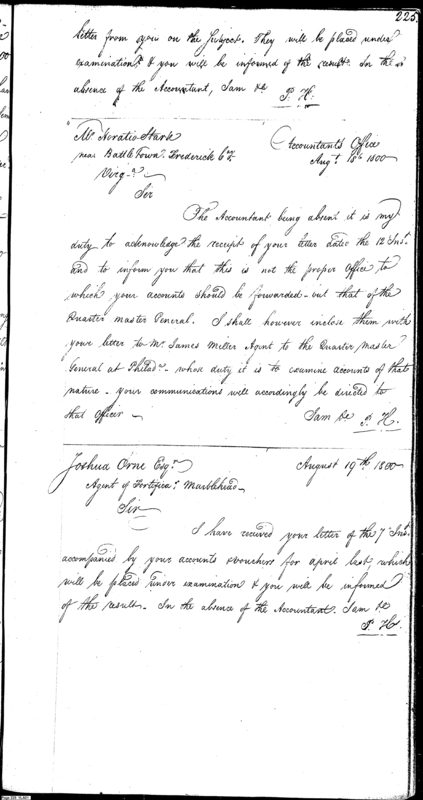 225
letter from you on the Subject. They will be placed under
examination & you will be informed of the result. In the
absence of the Accountant, I am &c
P. H.
Mr. Horatio Stark
near Battle Town. Frederick Cty
Virga.
Accountants Office
Augt. 18th 1800
Sir
The Accountant being absent it is my
duty to acknowledge the receipt of your letter dated the 12 Inst.
and to inform you that this is not the proper Office to
which your accounts should be forwarded - but that of the
Quarter master General. I shall however inclose them with
your letter to Mr. James Miller Agent to the Quarter Master
General at Philada. whose duty it is to examine accounts of that
nature - your communications will accordingly be directed to
that Officer
I am &c P. H.
Joshua Orne Esqr.
August 19th 1800
Agent of Fortifica. Marblehead
Sir
I have received your letter of the 7 Inst.
accompanied by your accounts & vouchers for april last, which
will be placed under examination & you will be informed
of the result. In the absence of the Accountant. I am &c
P. H.